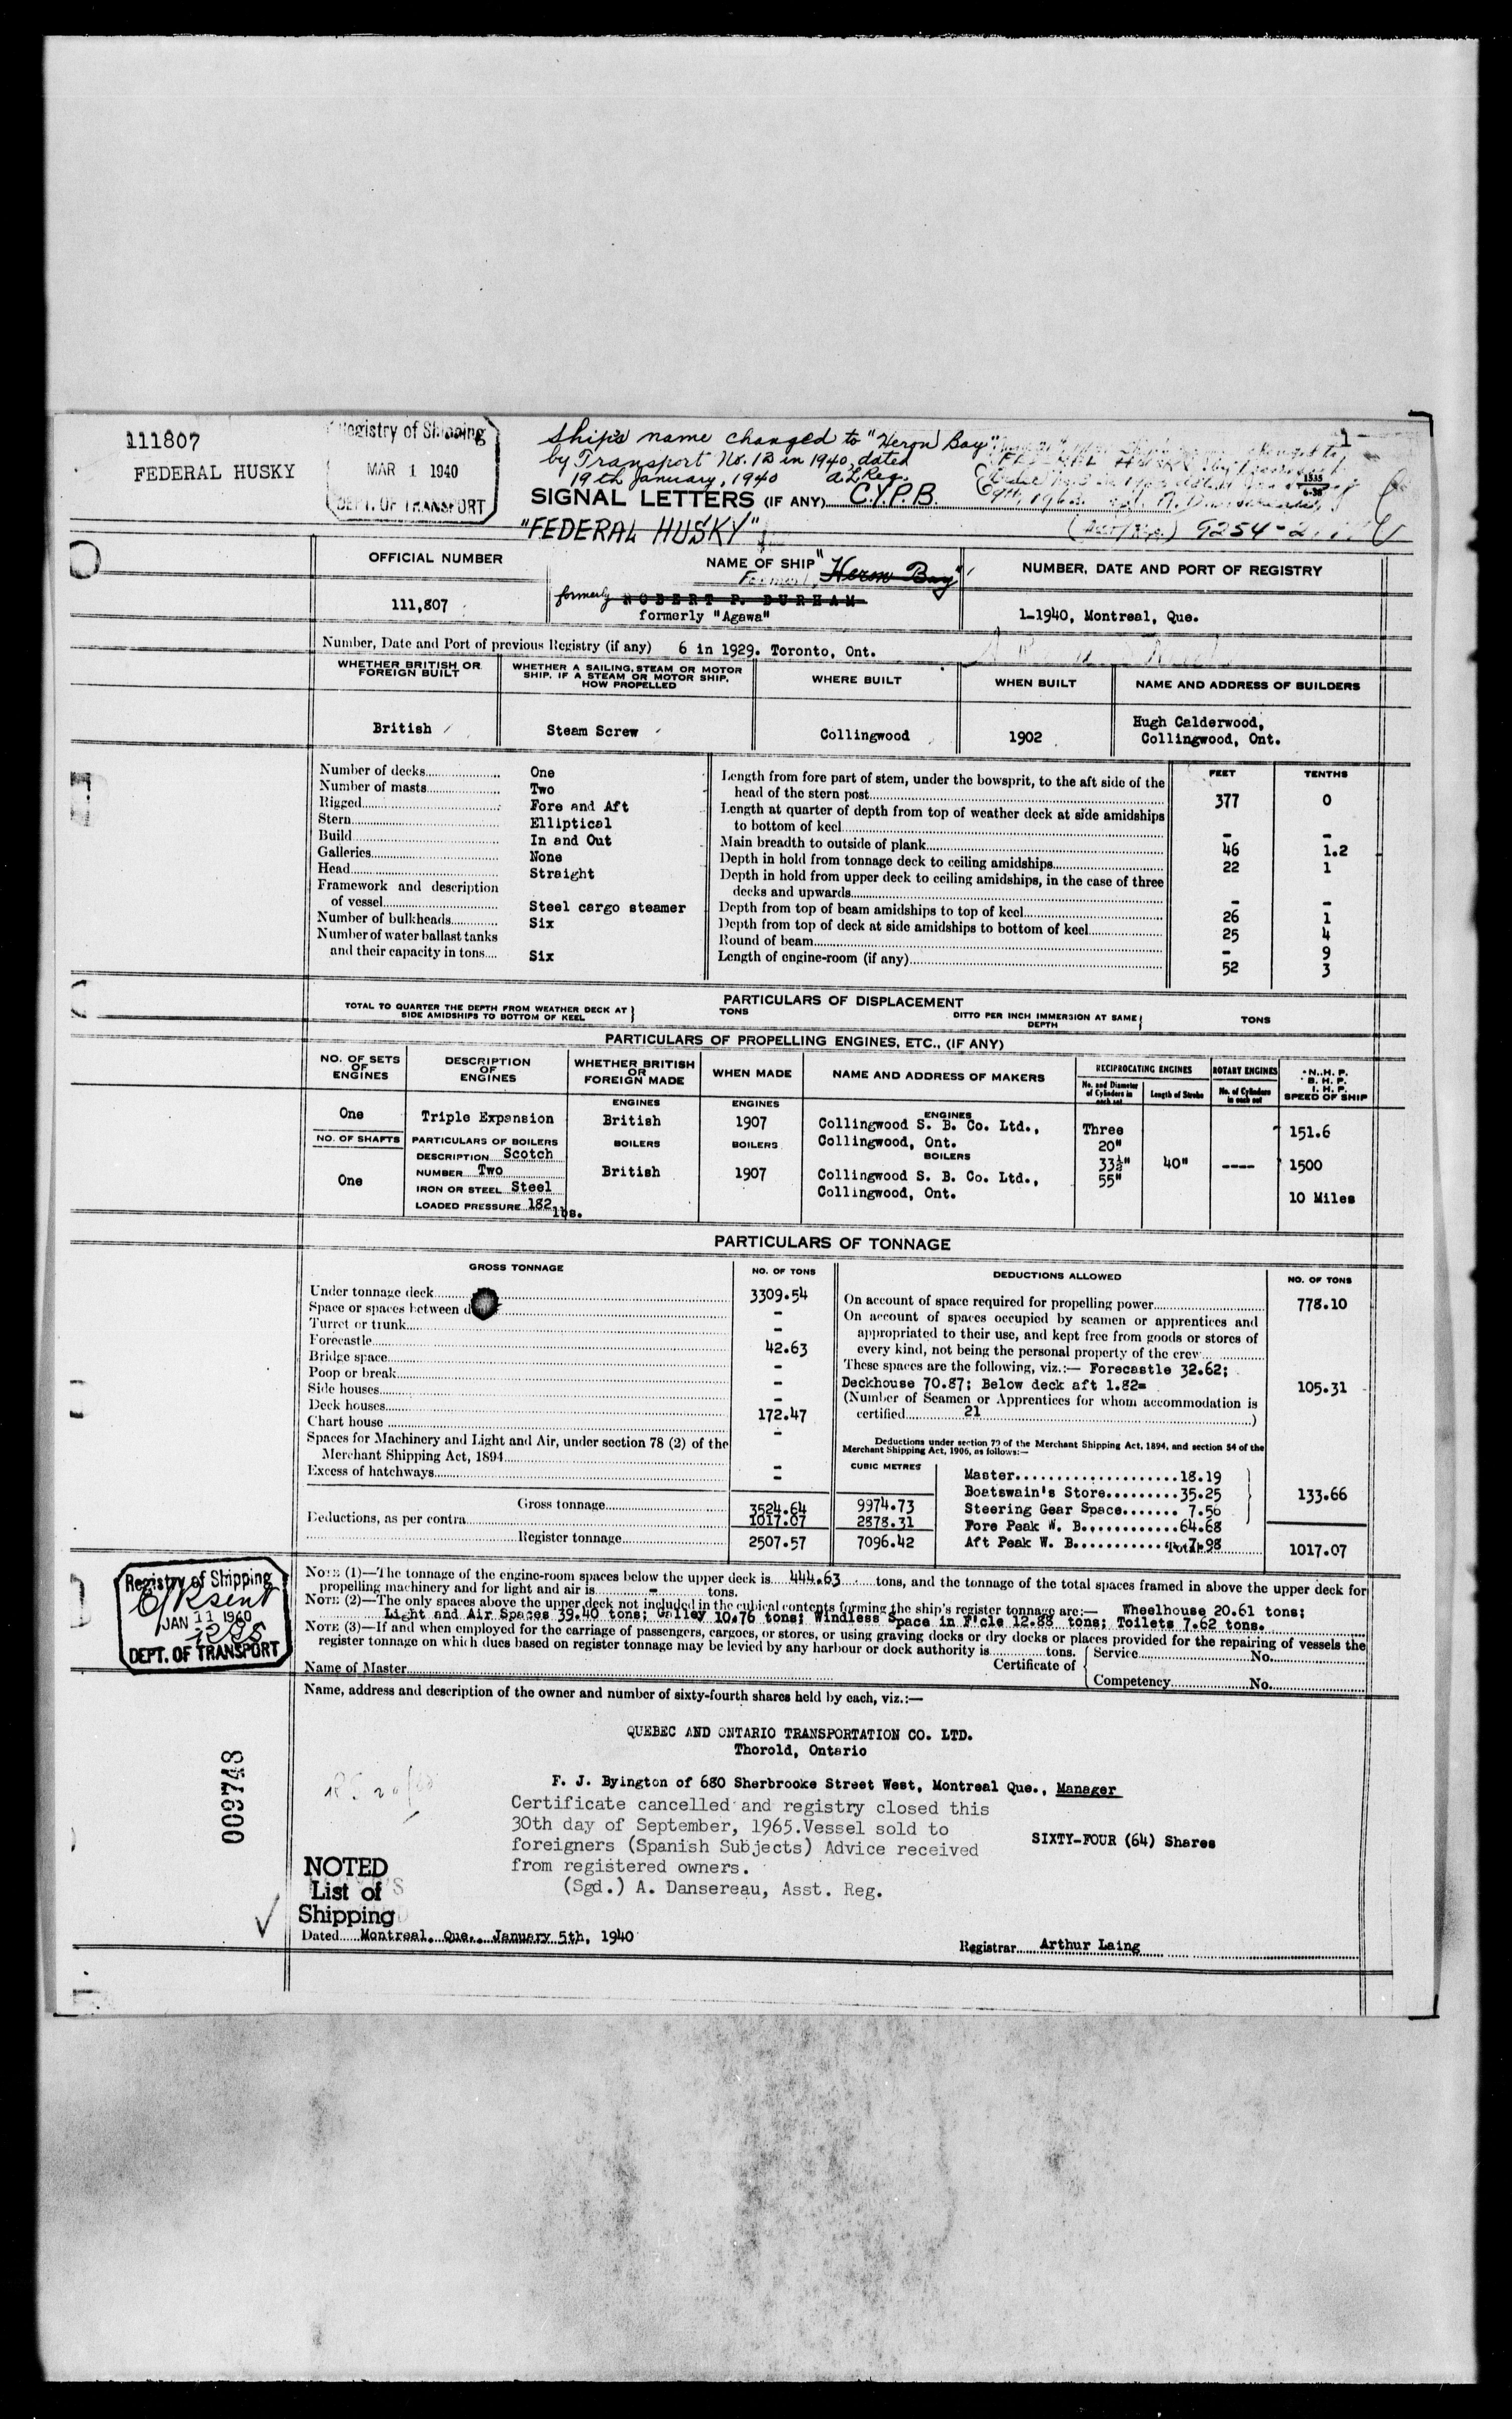 111807
FEDERAL HUSKY
Registry of Shipping
MAR 1 1940
DEPT. OF TRANSPORT
Ship's name changed to "Heron Bay"
by Transport No. 1B in 1940, dated
19th January, 1940 A L Reg.
1
1535
6-38
SIGNAL LETTERS (IF ANY) C.Y.P.B.
9254-2
"FEDERAL HUSKY"
OFFICIAL NUMBER
NAME OF SHIP
NUMBER, DATE AND PORT OF REGISTRY
"Heron Bay"
111,807
formerly ROBERT P. DURHAM
formerly "Agawa"
1-1940, Montreal, Que.
Number, Date and Port of previous Registry (if any) 6 in 1929. Toronto, Ont.
WHETHER BRITISH OR FOREIGN BUILT
WHETHER A SAILING, STEAM OR MOTOR SHIP. IF A STEAM OR MOTOR SHIP, HOW PROPELLED
WHERE BUILT
WHEN BUILT
NAME AND ADDRESS OF BUILDERS
British
Steam Screw
Collingwood
1902
Hugh Calderwood,
Collingwood, Ont.
Number of decks One
Number of masts Two
Rigged Fore and Aft
Stern Elliptical
Build In and Out
Galleries None
Head Straight
Framework and description
of vessel Steel cargo steamer
Number of bulkheads Six
Number of water ballast tanks
and their capacity in tons Six
FEET TENTHS
Length from fore part of stem, under the bowsprit, to the aft side of the
head of the stern post 377 0
Length at quarter of depth from top of weather deck at side amidships
to bottom of keel - -
Main breadth to outside of plank 46 1.2
Depth in hold from tonnage deck to ceiling amidships 22 1
Depth in hold from upper deck to ceiling amidships, in the case of three
decks and upwards - -
Depth from top of beam amidships to top of keel 26 1
Depth from top of deck at side amidships to bottom of keel 25 4
Round of beam - 9
Length of engine-room (if any) 52 3
PARTICULARS OF DISPLACEMENT
TOTAL TO QUARTER THE DEPTH FROM WEATHER DECK AT
SIDE AMIDSHIPS TO BOTTOM OF KEEL
TONS
DITTO PER INCH IMMERSION AT SAME
DEPTH
TONS
PARTICULARS OF PROPELLING ENGINES, ETC., (IF ANY)
NO. OF SETS OF ENGINES
DESCRIPTION OF ENGINES
WHETHER BRITISH OR FOREIGN MADE
WHEN MADE
NAME AND ADDRESS OF MAKERS
RECIPROCATING ENGINES
No. and Diameter of Cylinders in each set
Length of Stroke
ROTARY ENGINES
No. of Cylinders in each set
N. H. P.
B. H. P.
I. H. P.
SPEED OF SHIP
One
Triple Expansion
ENGINES
British
ENGINES
1907
ENGINES
Collingwood S. B. Co. Ltd.,
Collingwood, Ont.
Three
20"
33½"
55"
40"
----
151.6
1500
10 Miles
NO. OF SHAFTS
One
PARTICULARS OF BOILERS
DESCRIPTION Scotch
NUMBER Two
IRON OR STEEL Steel
LOADED PRESSURE 182 lbs.
BOILERS
British
BOILERS
1907
BOILERS
Collingwood S. B. Co. Ltd.,
Collingwood, Ont.
PARTICULARS OF TONNAGE
GROSS TONNAGE
NO. OF TONS
DEDUCTIONS ALLOWED
NO. OF TONS
Under tonnage deck 3309.54
Space or spaces between d -
Turret or trunk -
Forecastle 42.63
Bridge space -
Poop or break -
Side houses -
Deck houses 172.47
Chart house -
Spaces for Machinery and Light and Air, under section 78 (2) of the
Merchant Shipping Act, 1894 -
Excess of hatchways -
Gross tonnage 3524.64 9974.73
Deductions, as per contra 1017.07 2878.31
Register tonnage 2507.57 7096.42
On account of space required for propelling power 778.10
On account of spaces occupied by seamen or apprentices and
appropriated to their use, and kept free from goods or stores of
every kind, not being the personal property of the crew
These spaces are the following, viz.:— Forecastle 32.62;
Deckhouse 70.87; Below deck aft 1.82= 105.31
(Number of Seamen or Apprentices for whom accommodation is
certified 21 )
Deductions under section 79 of the Merchant Shipping Act, 1894, and section 54 of the
Merchant Shipping Act, 1906, as follows:—
CUBIC METRES
Master 18.19
Boatswain's Store 35.25
Steering Gear Space 7.56
Fore Peak W. B. 64.68
Aft Peak W. B. 7.98
133.66
Total 1017.07
NOTE (1)—The tonnage of the engine-room spaces below the upper deck is 444.63 tons, and the tonnage of the total spaces framed in above the upper deck for
propelling machinery and for light and air is - tons.
NOTE (2)—The only spaces above the upper deck not included in the cubical contents forming the ship's register tonnage are:— Wheelhouse 20.61 tons;
Light and Air Spaces 39.40 tons; Galley 10.76 tons; Windless Space in F'cle 12.88 tons; Toilets 7.62 tons.
NOTE (3)—If and when employed for the carriage of passengers, cargoes, or stores, or using graving docks or dry docks or places provided for the repairing of vessels the
register tonnage on which dues based on register tonnage may be levied by any harbour or dock authority is tons.
Name of Master
Certificate of
Service No.
Competency No.
Registry of Shipping
JAN 11 1940
DEPT. OF TRANSPORT
Name, address and description of the owner and number of sixty-fourth shares held by each, viz.:—
QUEBEC AND ONTARIO TRANSPORTATION CO. LTD.
Thorold, Ontario
F. J. Byington of 680 Sherbrooke Street West, Montreal Que., Manager
Certificate cancelled and registry closed this
30th day of September, 1965. Vessel sold to
foreigners (Spanish Subjects) Advice received
from registered owners.
(Sgd.) A. Dansereau, Asst. Reg.
SIXTY-FOUR (64) Shares
009748
NOTED
List of
Shipping
Dated Montreal, Que., January 5th, 1940
Registrar Arthur Laing